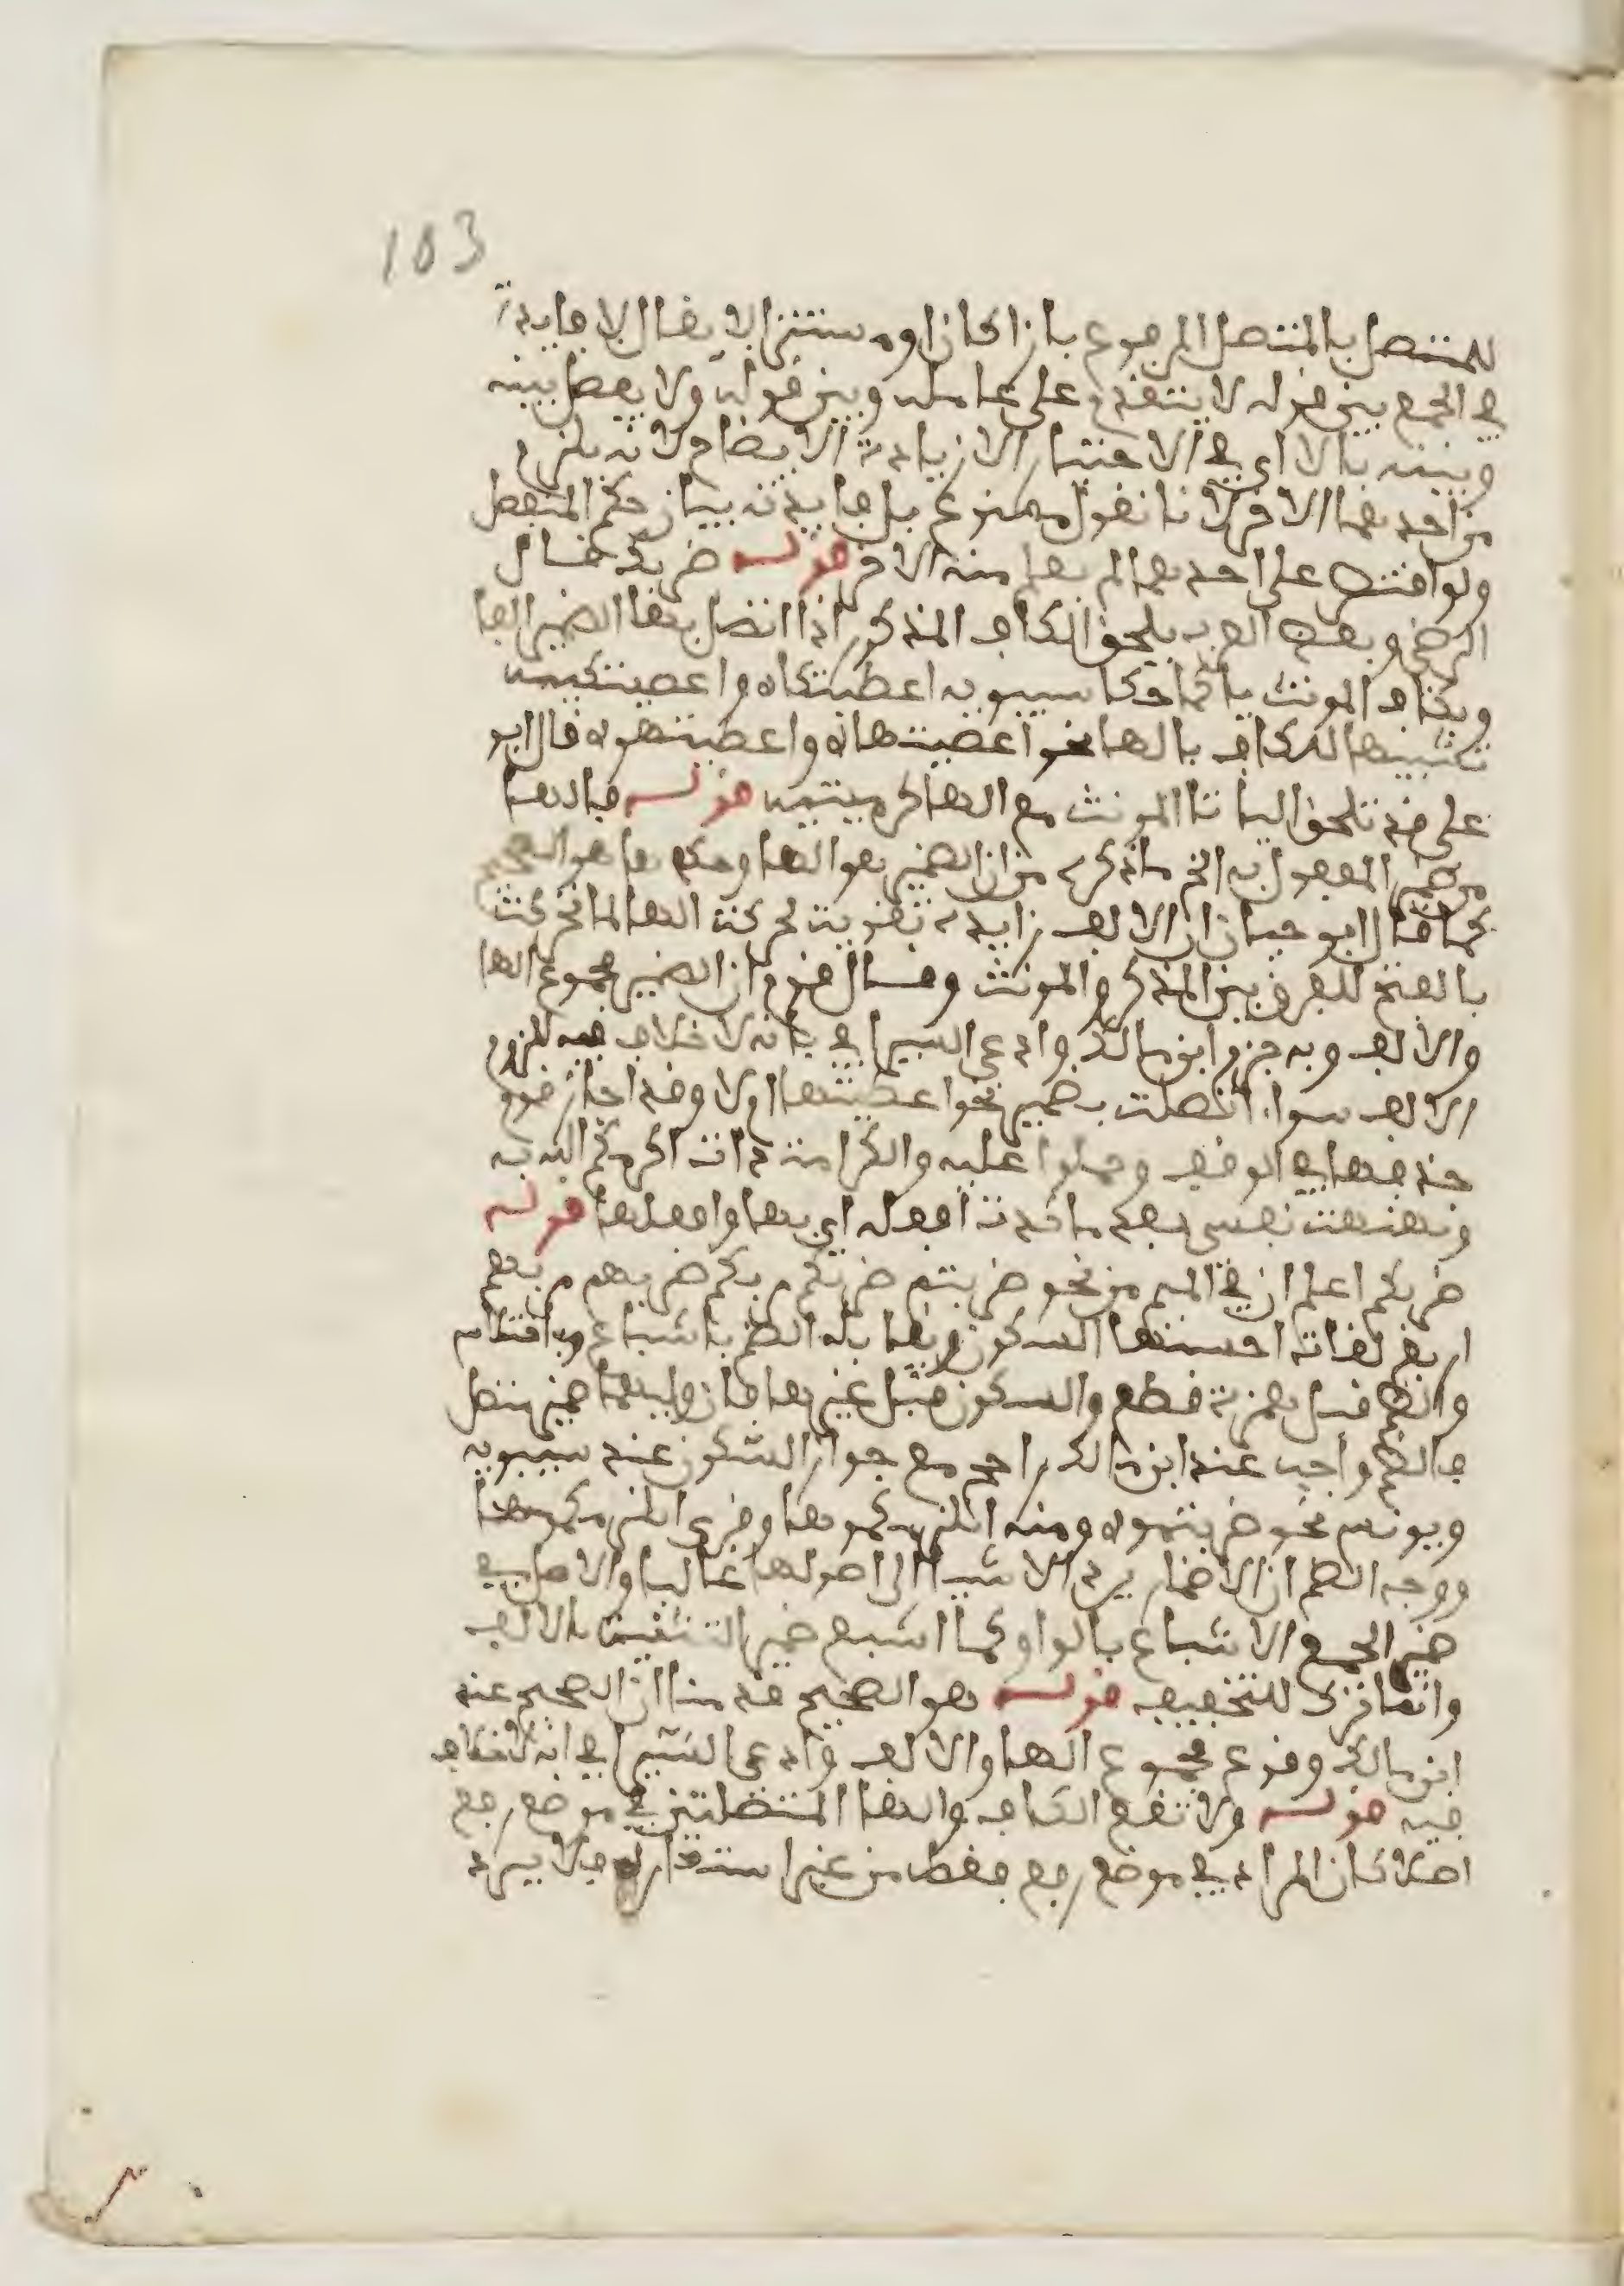 103
للمتصل بالمتصل المرفوع بارزا كان او مستترا لا يقال لا فايدة
في الجمع بين قوله لا يتقدم على عامله وبين قوله ولا يفصل بينه
وبينه بالا اي في الاختيار الا زيادة الايضاح لانه يلزم
من احدهما الاخر لانا نقول ممنوع بل فايدته بيان حكم المنفصل
ولو اقتصر على احدهما لم يعلم منه الاخر قوله ضربك قال
الرضي وبعض العرب يلحق الكاف المذكر اذا اتصل بها الضمير الفا
وبكاف المونث يا كما حكا سيبويه اعطيتكاه واعطيتكيه
تشبيها للكاف بالها نحو اعطيتهاه واعطيتهوه قال ابو
على قد تلحق اليا تا المونث مع الها كرميتيه قوله فالها
ضمير المفعول به الخ ما ذكره من ان الضمير هو الها وحدها هو الصحيح
كما قال ابو حيان ان الالف زايدة تقوية لحركة الها لما تحركت
بالفتح للفرق بين المذكر والمونث وقال قوم ان الضمير مجموع الها
والالف وبه جزم ابن مالك وادعى السيرافي بانه لا خلاف فيه للزوم
الالف سوا اتصلت بضمير نحو اعطيتها او لا وقد اجاز قوم
حذفها في الوقف وحملوا عليه والكرامة ذات اكرمكم الله به
ونهنهت نفسي بعد ما كدت افعله اي بها وافعلها قوله
ضربكم اعلم ان في الميم من نحو ضربتم ضربكم بكم ضربهم بهم
اربع لغات احسنها السكون ويقابله الضم باشباع وباختلاس
والضم قبل همزة قطع والسكون قبل غيرها فان وليها ضمير متصل
فالضم واجب عند ابن مالك راجح مع جواز السكون عند سيبويه
ويونس نحو ضربتموه ومنه انلزمكموها وقرى انلزمكمها
ووجه الضم ان الاضمار يرد الاشيا الى اصولها غالبا والاصل في
ضمير الجمع الاشباع بالواو كما اشبع ضمير التثنية بالالف
وانما ترك للتخفيف قوله هو الصحيح قدمنا ان الصحيح عند
ابن مالك وقوع مجموع الها والالف وادعى السيرافي انه لا خلاف
فيه قوله ولا تقع الكاف والها المتصلتين في موضع رفع
اصلا كان المراد في موضع رفع فقط من غير استعارة فلا يرد